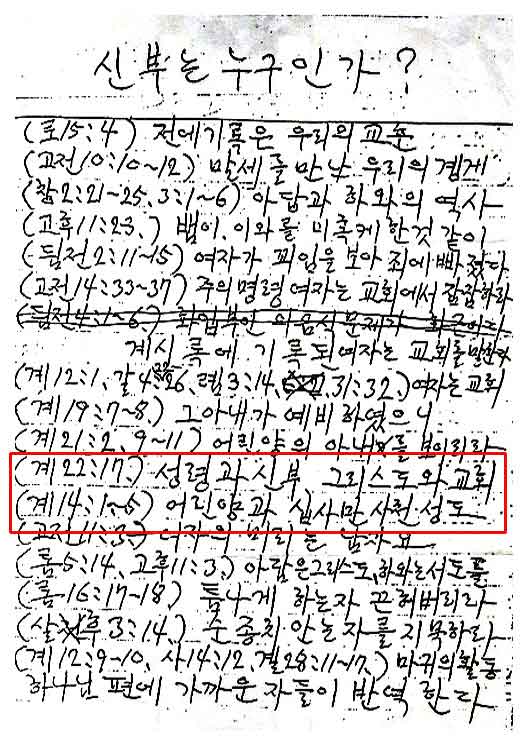 신부는 누구인가?
(로15:4) 전에기록은 우리의 교훈
(고전10:10~12) 말세를 만난 우리의 경계
(창2:21~25, 3:1~6) 아담과 하와의 역사
(고후11:23.) 뱀이, 이와를 미혹케 한것 같이
(딤전2:11~15) 여자가 꾀임을 보아 죄에 빠졌다
(고전14:33~37) 주의 명령 여자는 교회에서 잠잠하라
(딤전4:1~6.)
계시록에 기록된 여자는 교회를 말한다
(계12:1, 갈4:26, 렘3:14, 31:32.) 여자는 교회
(계19:7~8.) 그아내가 예비하였으니
(계21:2, 9~11) 어린양의 아내를 보이리라
(계22:17.) 성령과 신부 그리스도와 교회
(계14:1~5) 어린양과 십사만 사천 성도
(고전11:3.) 여자의 머리는 남자요
(롬5:14, 고후11:3.) 아담은그리스도, 하와는성도들
(롬16:17~18.) 틈나게 하는자 끈허버리라
(살후3:14.) 순종치 안는자를 지목하라
(계12:9~10, 사14:12, 겔28:11~17.) 마귀의활동
하나님 편에 가까운 자들이 반역한다